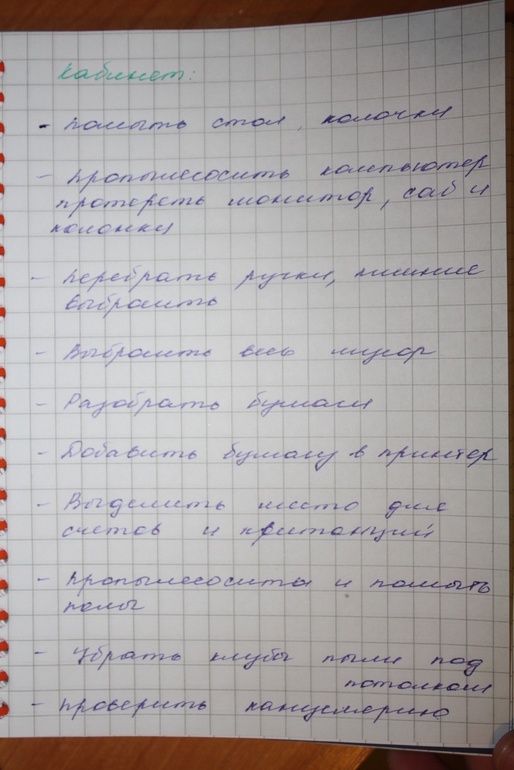 Кабинет:
- помыть стол, полочки
- Пропылесосить компьютер
протереть монитор, саб и
колонки
- Перебрать ручки, лишние
выбросить
- Выбросить весь мусор
- Разобрать бумаги
- Добавить бумагу в принтер
- Выделить место для
счетов и квитанций
- Пропылесосить и помыть
полы
- Убрать клубы пыли под
потолком
- проверить канцелярию